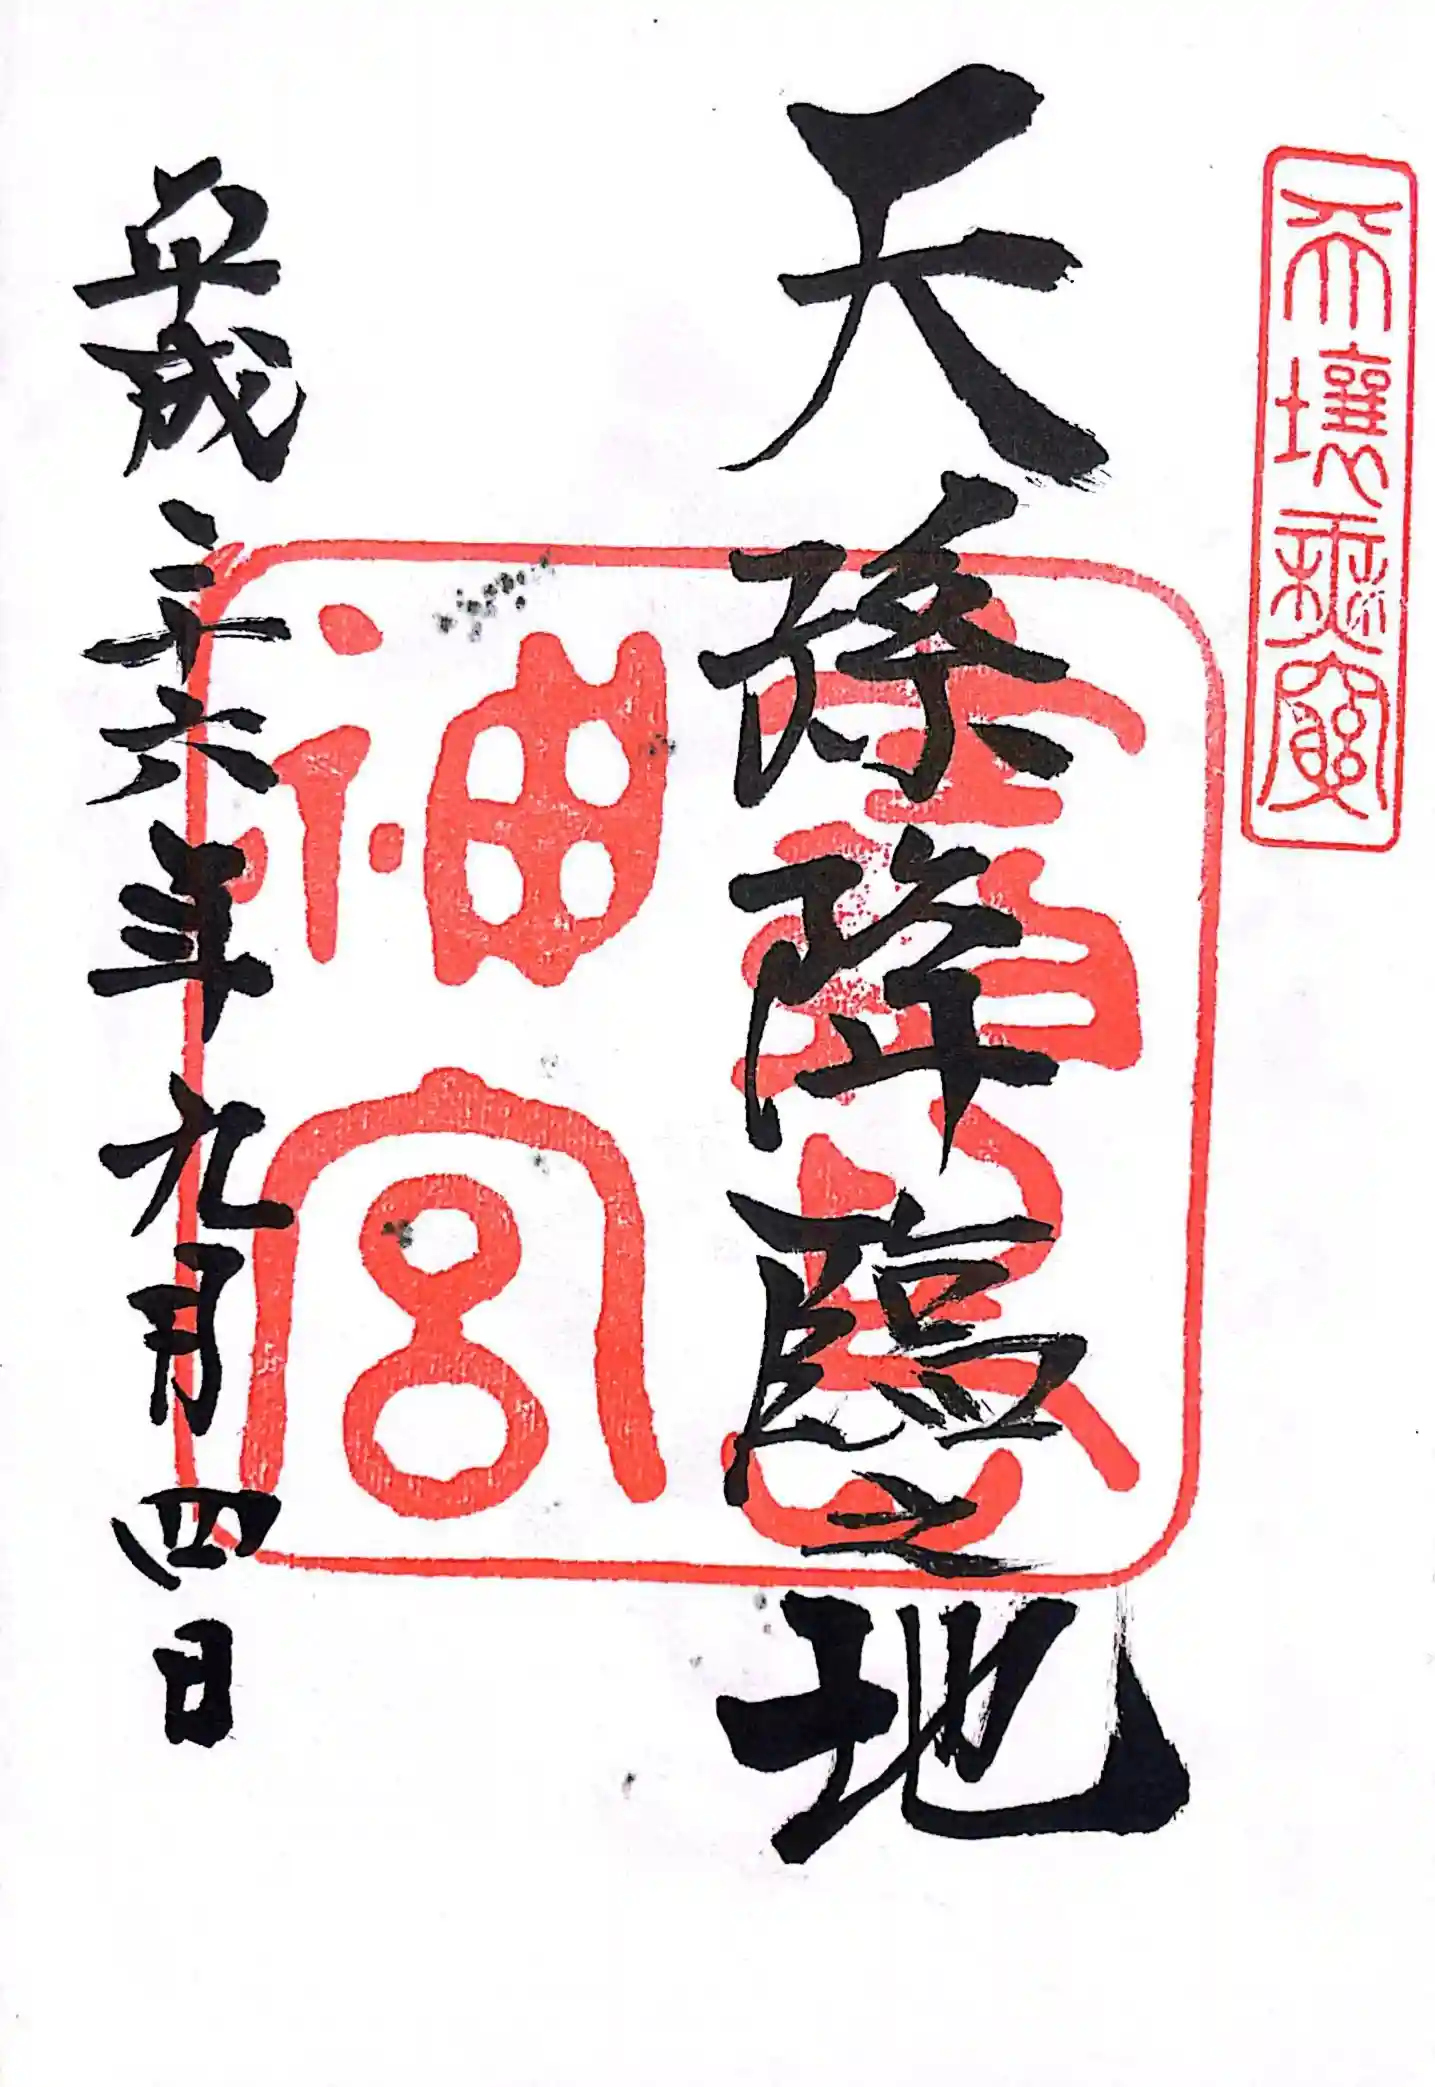 天壤無窮
天孫降臨之地
霧島神宮
平成二十六年九月四日